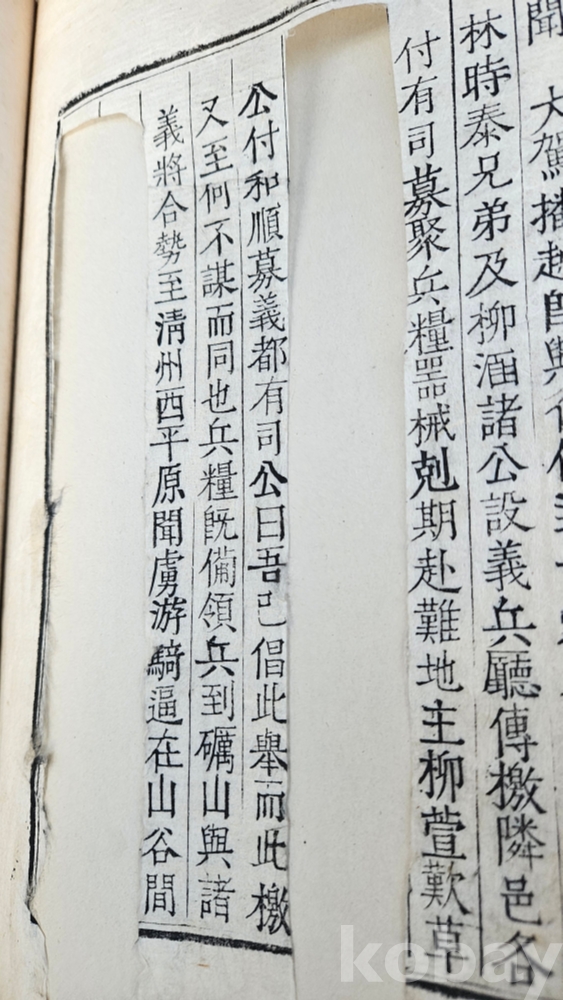 聞 大駕播越
林時泰兄弟及柳涵諸公設義兵廳傳檄隣邑各
付有司募聚兵糧器械剋期赴難地主柳萱歎草
公付和順募義都有司公曰吾已倡此舉而此檄
又至何不謀而同也兵糧旣備領兵到礪山與諸
義將合勢至淸州西平原聞虜游騎逼在山谷間
kobay